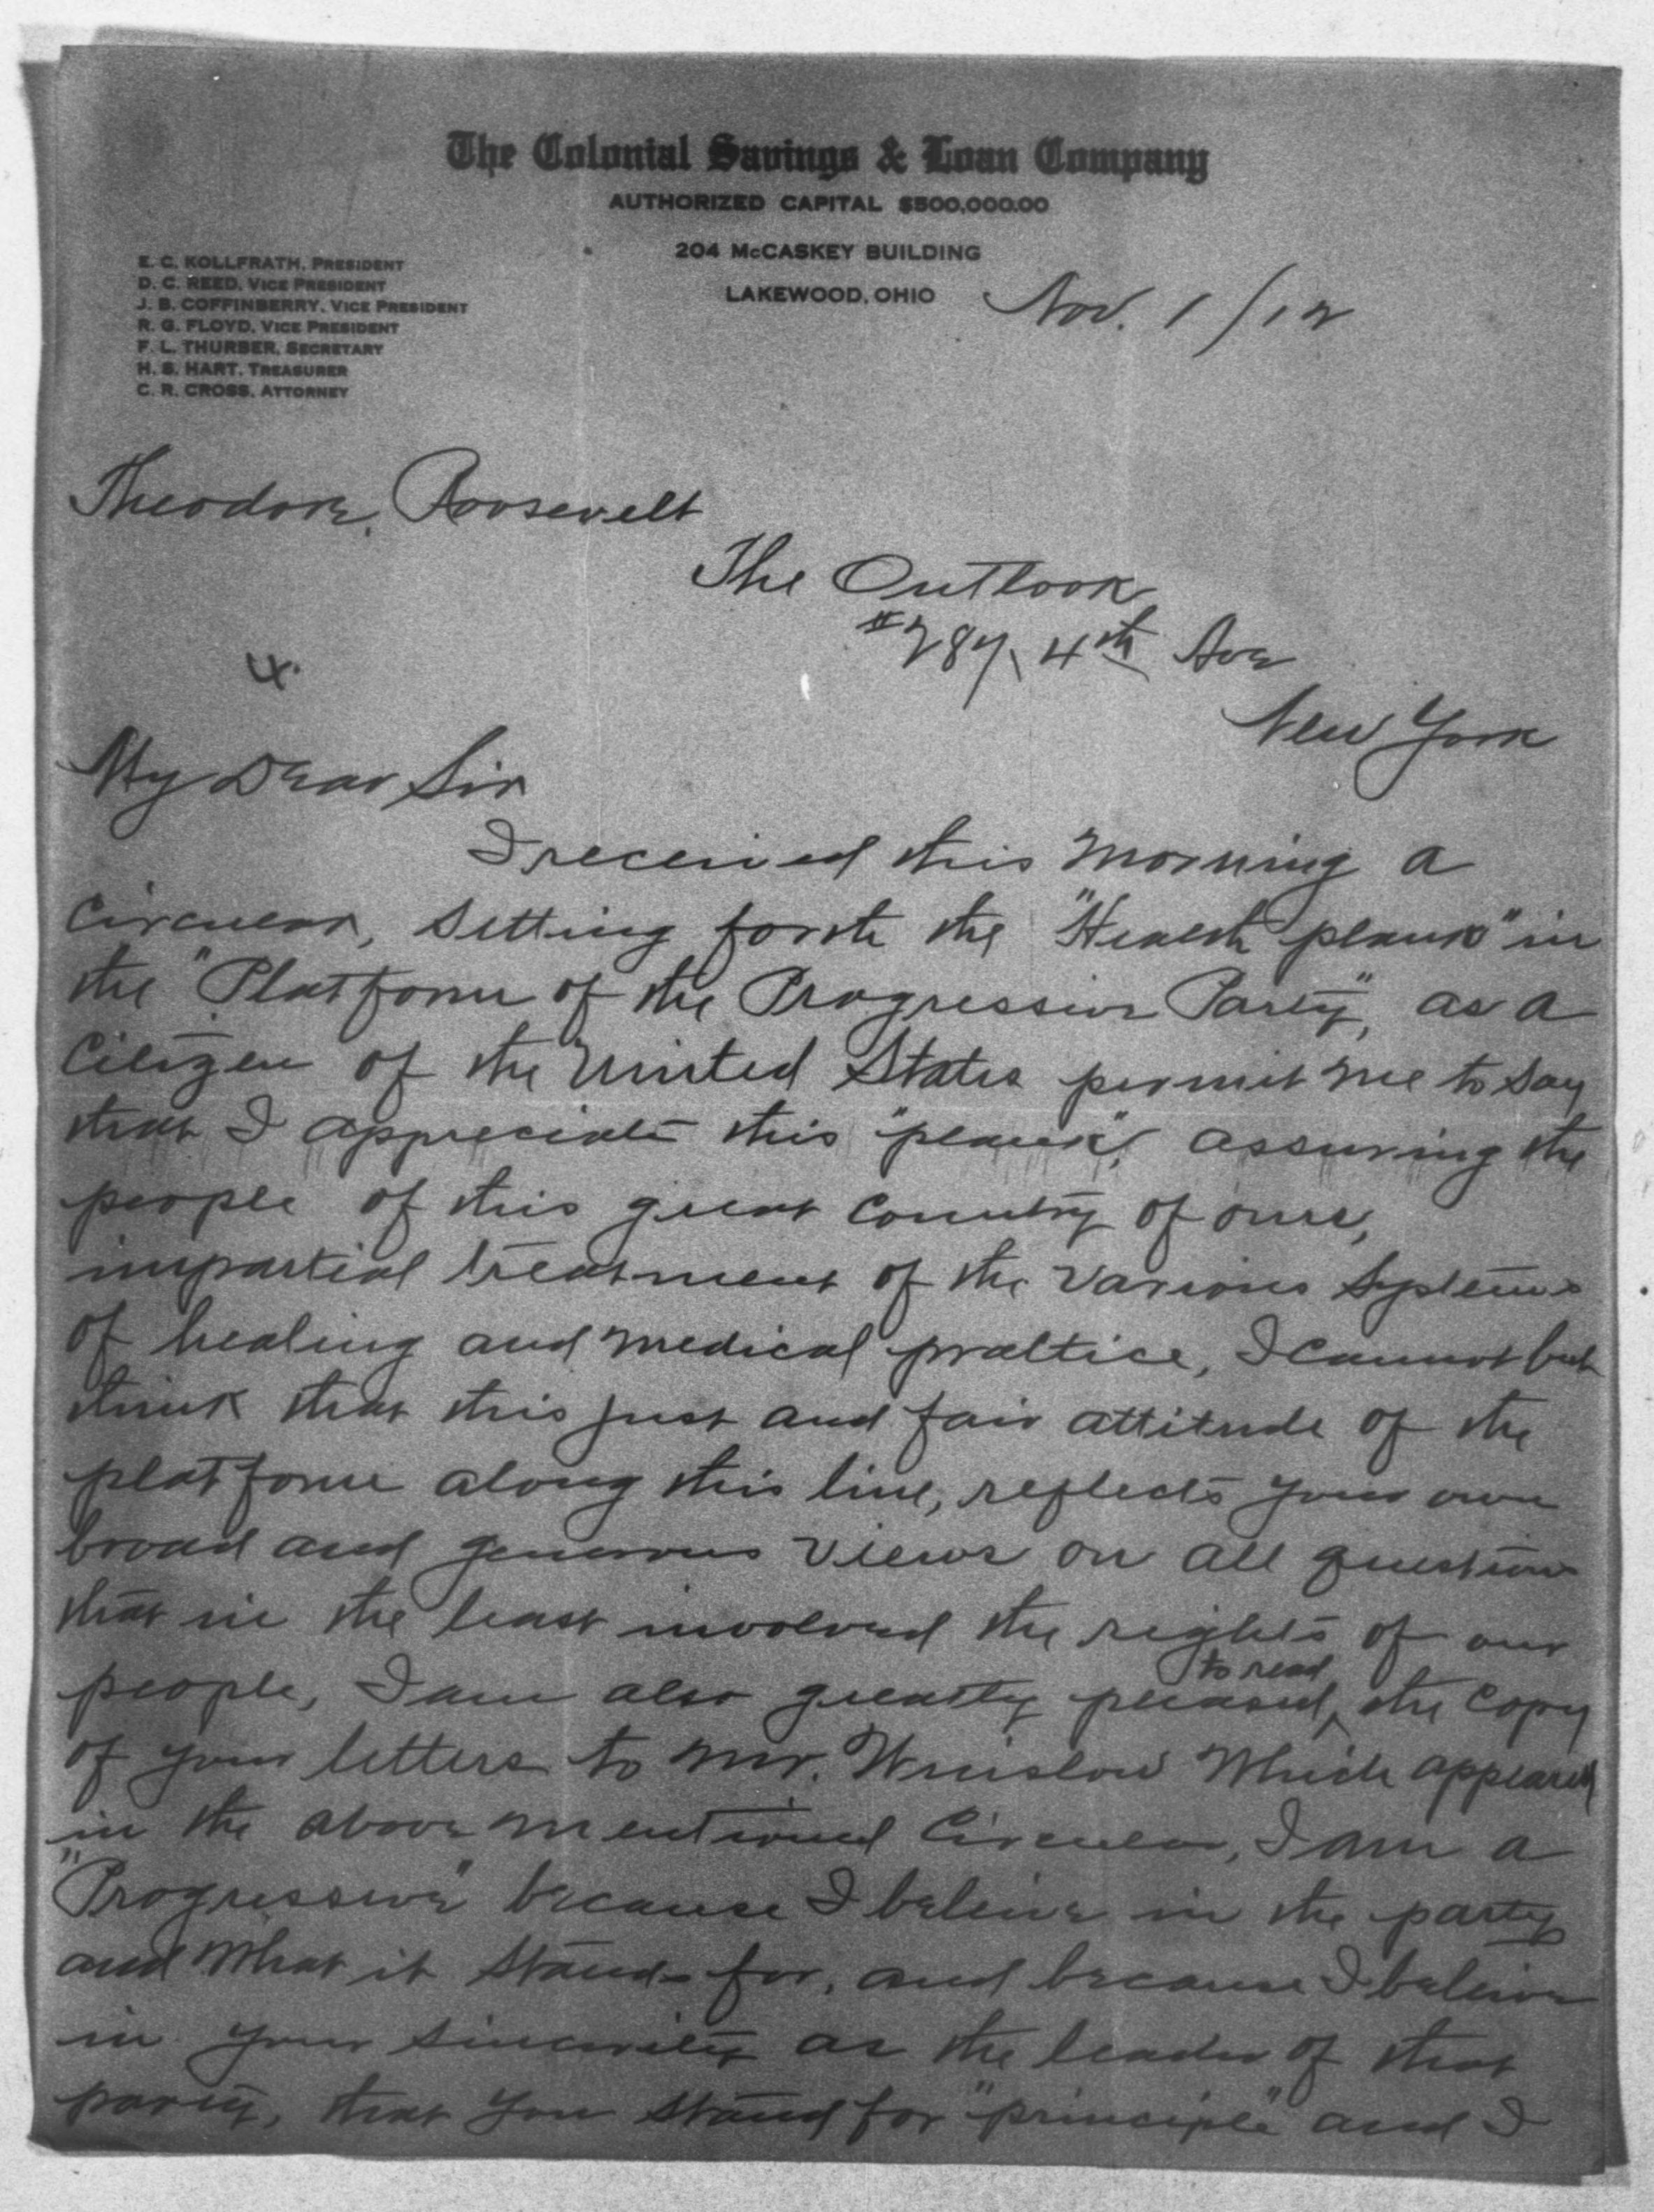 The Colonial Savings & Loan Company
AUTHORIZED CAPITAL $500,000.00
204 McCASKEY BUILDING
LAKEWOOD, OHIO
E. C. KOLLFRATH, PRESIDENT
D. C. REED, VICE PRESIDENT
J. B. COFFINBERRY, VICE PRESIDENT
R. G. FLOYD, VICE PRESIDENT
F. L. THURBER, SECRETARY
H. S. HART, TREASURER
C. R. CROSS, ATTORNEY
Nov. 1/12
Theodore Roosevelt
The Outlook
#287, 4th Ave
New York
4.
My Dear Sir
I received this morning a
circular, setting forth the "Health plank" in
the "Platform of the Progressive Party", as a
Citizen of the United States permit me to say
that I appreciate this "plank", assuring the
people of this great country of ours,
impartial treatment of the various systems
of healing and medical practice, I cannot but
think that this just and fair attitude of the
platform along this line, reflects your own
broad and generous views on all questions
that in the least involved the rights of our
people, I am also greatly pleased to read the copy
of your letters to Mr. Winslow which appeared
in the above mentioned circular, I am a
"Progressive" because I believe in the party
and what it stands for, and because I believe
in your sincerity as the leader of that
party, that you stand for "principle" and I